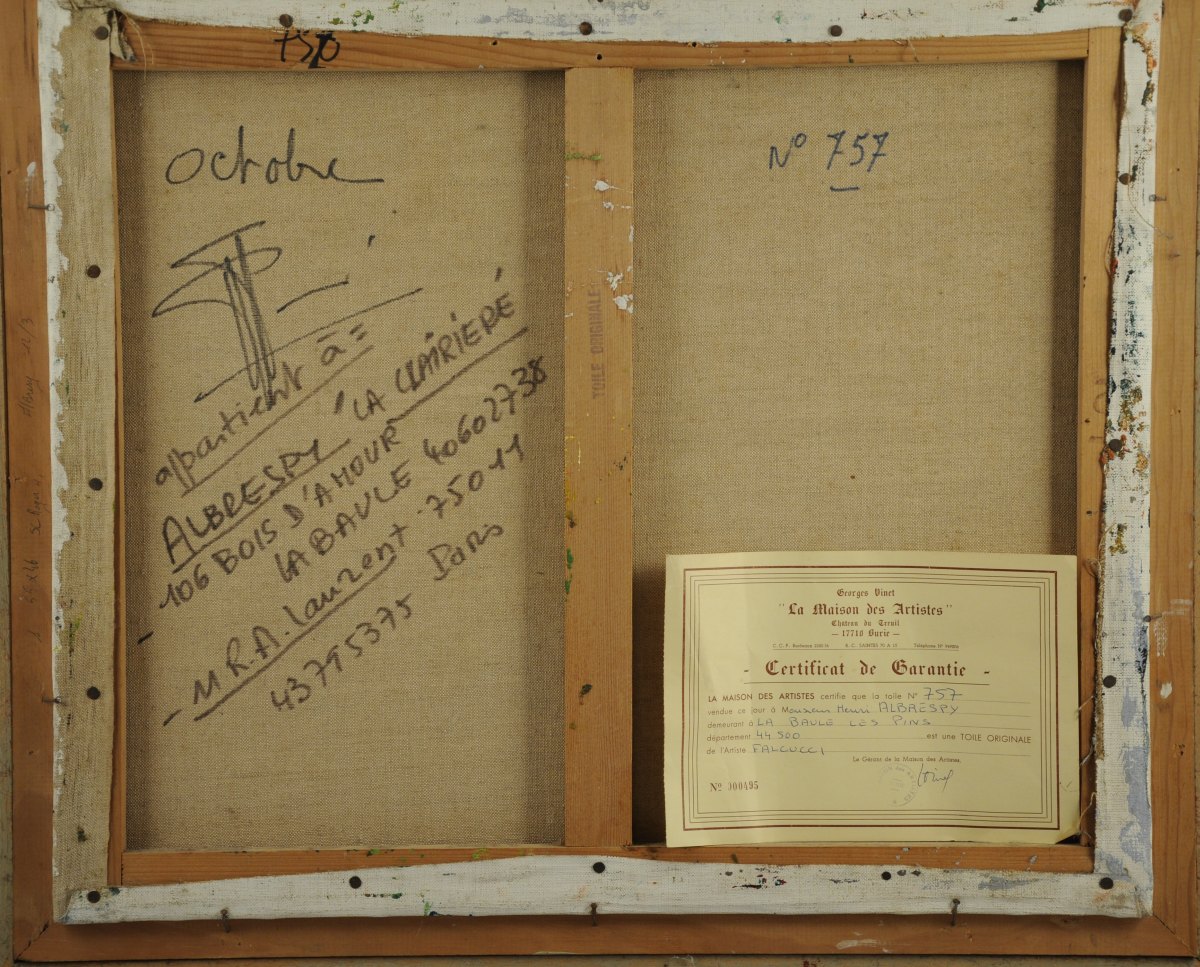 750
Octobre
N° 757
appartient à =
ALBRESPY "LA CLAIRIERE"
106 BOIS D'AMOUR
LA BAULE 40602738
- M R.A. Laurent - 75011
Paris
43795375
TOILE ORIGINALE
Georges Vinet
"La Maison des Artistes"
Château du Treuil
— 17710 Burie —
C. C. P. Bordeaux R. C. SAINTES 70 A 15 Téléphone N°
- Certificat de Garantie -
LA MAISON DES ARTISTES certifie que la toile N° 757
vendue ce jour à Monsieur Henri ALBRESPY
demeurant à LA BAULE LES PINS
département 44500 est une TOILE ORIGINALE
de l'Artiste FALCUCCI
Le Gérant de la Maison des Artistes,
N° 000495